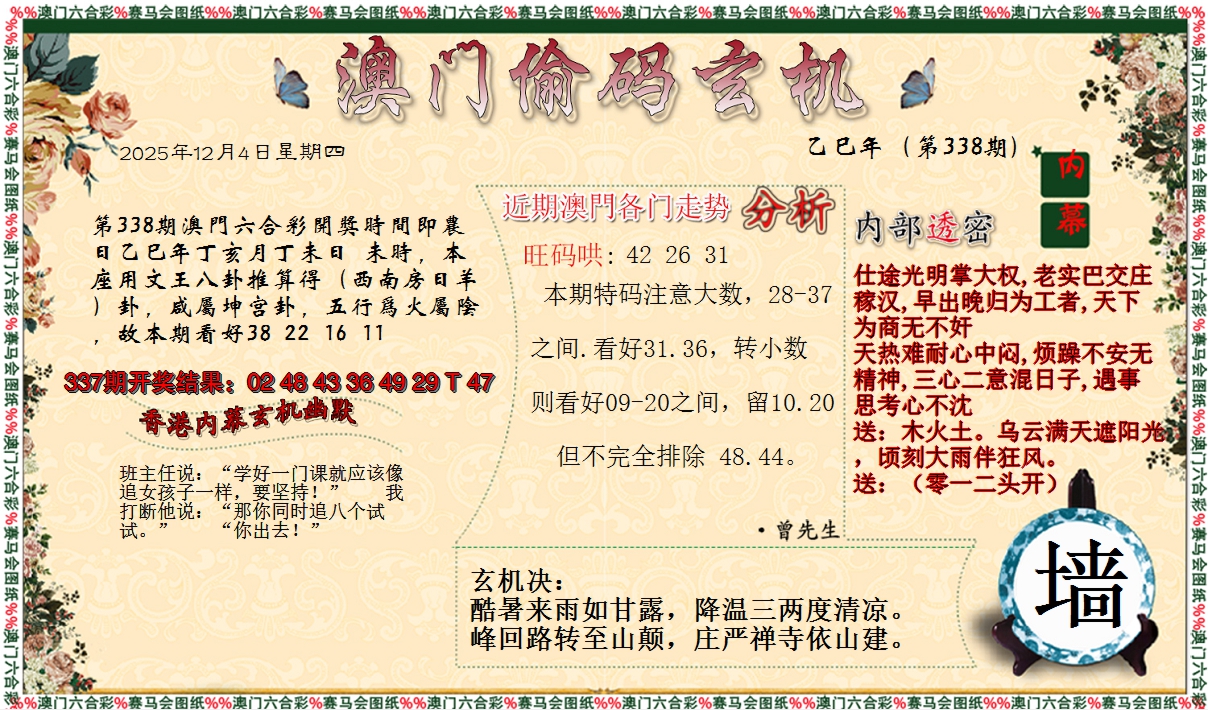 %%澳门六合彩%赛马会图纸%%澳门六合彩%赛马会图纸%%澳门六合彩%赛马会图纸%%澳门六合彩%赛马会图纸%%澳门六合彩%赛马会图纸%%澳门六合彩%赛马会图纸%%
澳门偷码玄机
2025年12月4日星期四
乙巳年（第338期）
内幕
第338期澳門六合彩開獎時間即農
日乙巳年丁亥月丁未日 未時，本
座用文王八卦推算得（西南房日羊
）卦，咸屬坤宫卦，五行爲火屬陰
，故本期看好38 22 16 11
337期开奖结果：02 48 43 36 49 29 T 47
香港内幕玄机幽默
班主任说：“学好一门课就应该像
追女孩子一样，要坚持！” 我
打断他说：“那你同时追八个试
试。” “你出去！”
近期澳門各门走势 分析
旺码哄: 42 26 31
本期特码注意大数，28-37
之间.看好31.36，转小数
则看好09-20之间，留10.20
但不完全排除 48.44。
·曾先生
内部透密
仕途光明掌大权,老实巴交庄
稼汉,早出晚归为工者,天下
为商无不奸
天热难耐心中闷,烦躁不安无
精神,三心二意混日子,遇事
思考心不沈
送：木火土。乌云满天遮阳光
，顷刻大雨伴狂风。
送：（零一二头开）
玄机决：
酷暑来雨如甘露，降温三两度清凉。
峰回路转至山颠，庄严禅寺依山建。
墙
%%澳门六合彩%赛马会图纸%%澳门六合彩%赛马会图纸%%澳门六合彩%赛马会图纸%%澳门六合彩%赛马会图纸%%澳门六合彩%赛马会图纸%%澳门六合彩%赛马会图纸%%